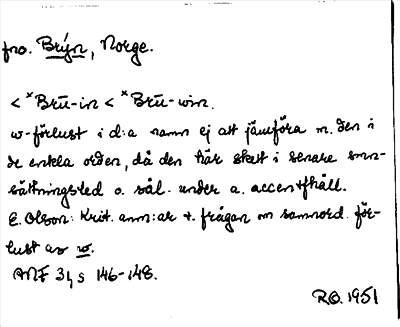 fno. Brýn, Norge.
< *Brū-in < *Brū-win.
w-förlust i d:a namn ej att jämföra m. den i
de enkla orden, då den här skett i senare smn-
sättningsled o. sål. under a. accentfhåll.
E. Olson: Krit. anm:ar t. frågan om samnord. för-
lust av w.
ANF 31, s 146-148.
R.O. 1951